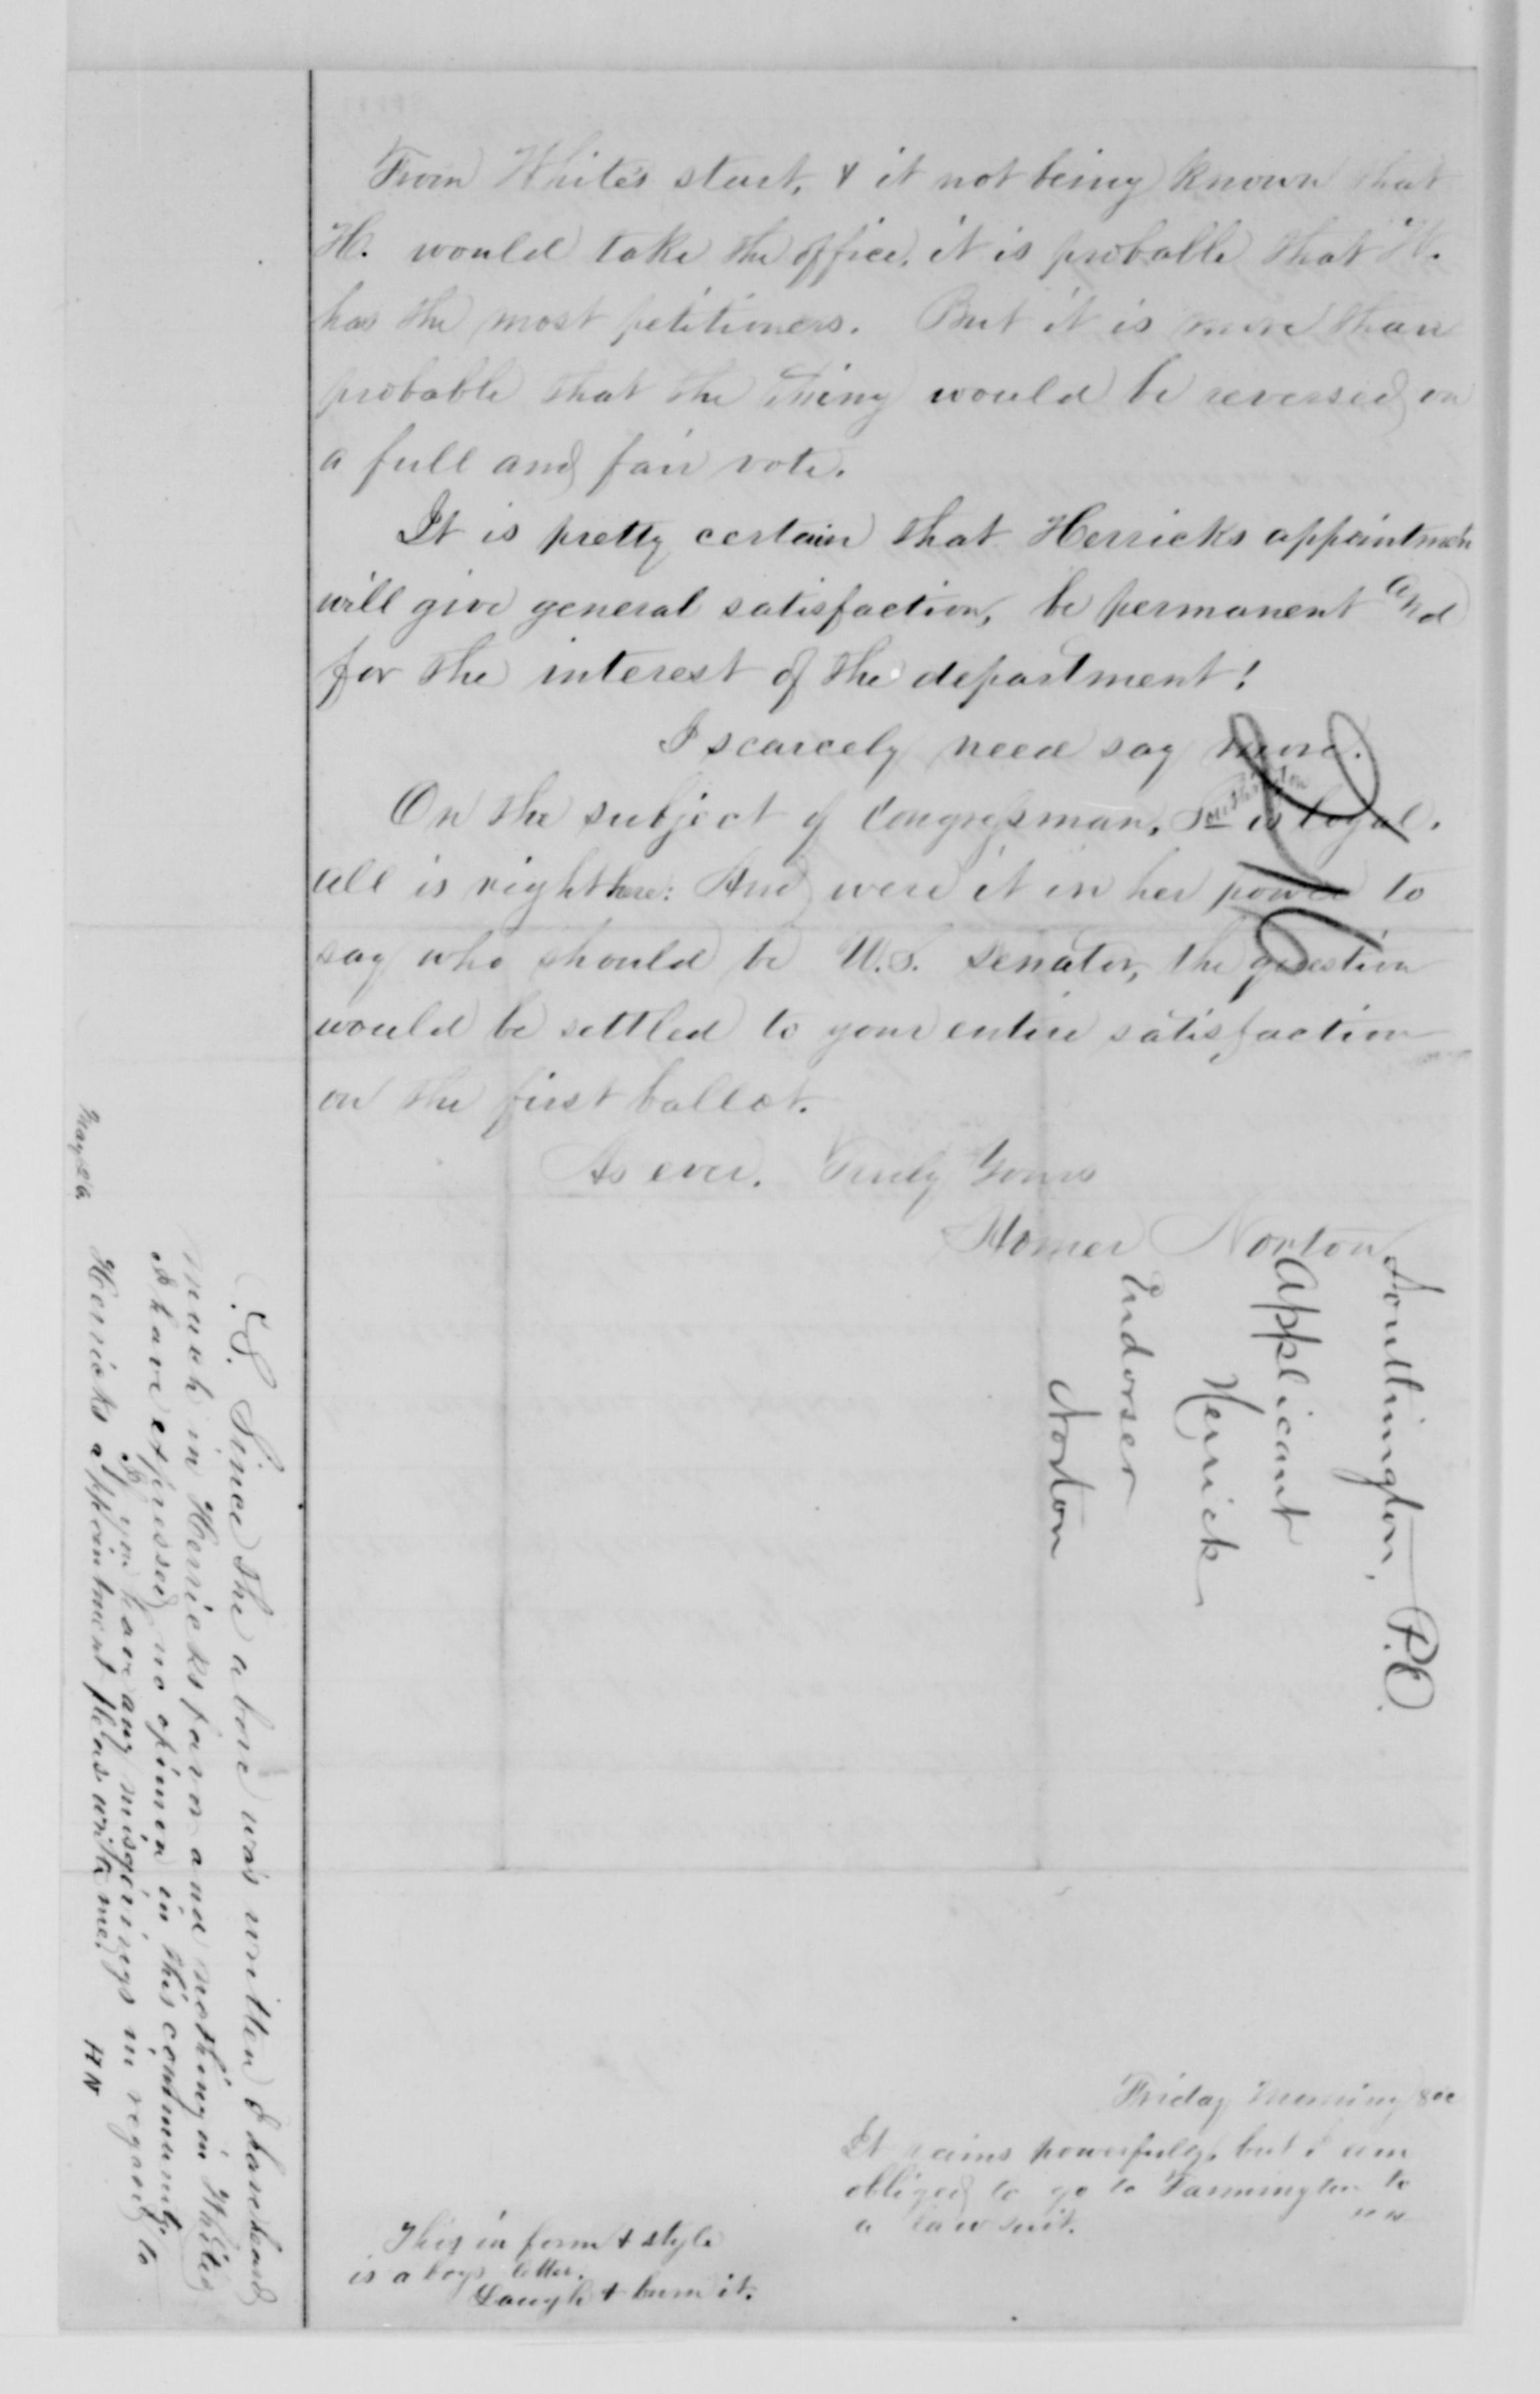 From White's start, & it not being known that
H. would take the office, it is probable that W.
has the most petitioners. But it is more than
probable that the thing would be reversed on
a full and fair vote.
It is pretty certain that Herricks appointment
will give general satisfaction, be permanent and
for the interest of the department!
I scarcely need say more.
On the subject of Congressman, is loyal.
all is right here: And were it in her power to
say who should be U.S. Senator, the question
would be settled to your entire satisfaction
on the first ballot.
As ever. Truly Yours
Homer Norton
Southington, P.O.
Applicant
Herrick
Endorser
Norton
P.S. Since the above was written I have heard
much in Herricks favor and nothing in Whites
I have expressed no opinion in this community.
If you have any misgivings in regard to
Herricks appointment pleas write me.
H N
Friday Morning
It rains powerfully, but I am
obliged to go to Farmington to
a law suit.
H N
This in form & style
is a boys letter.
Laugh & burn it.